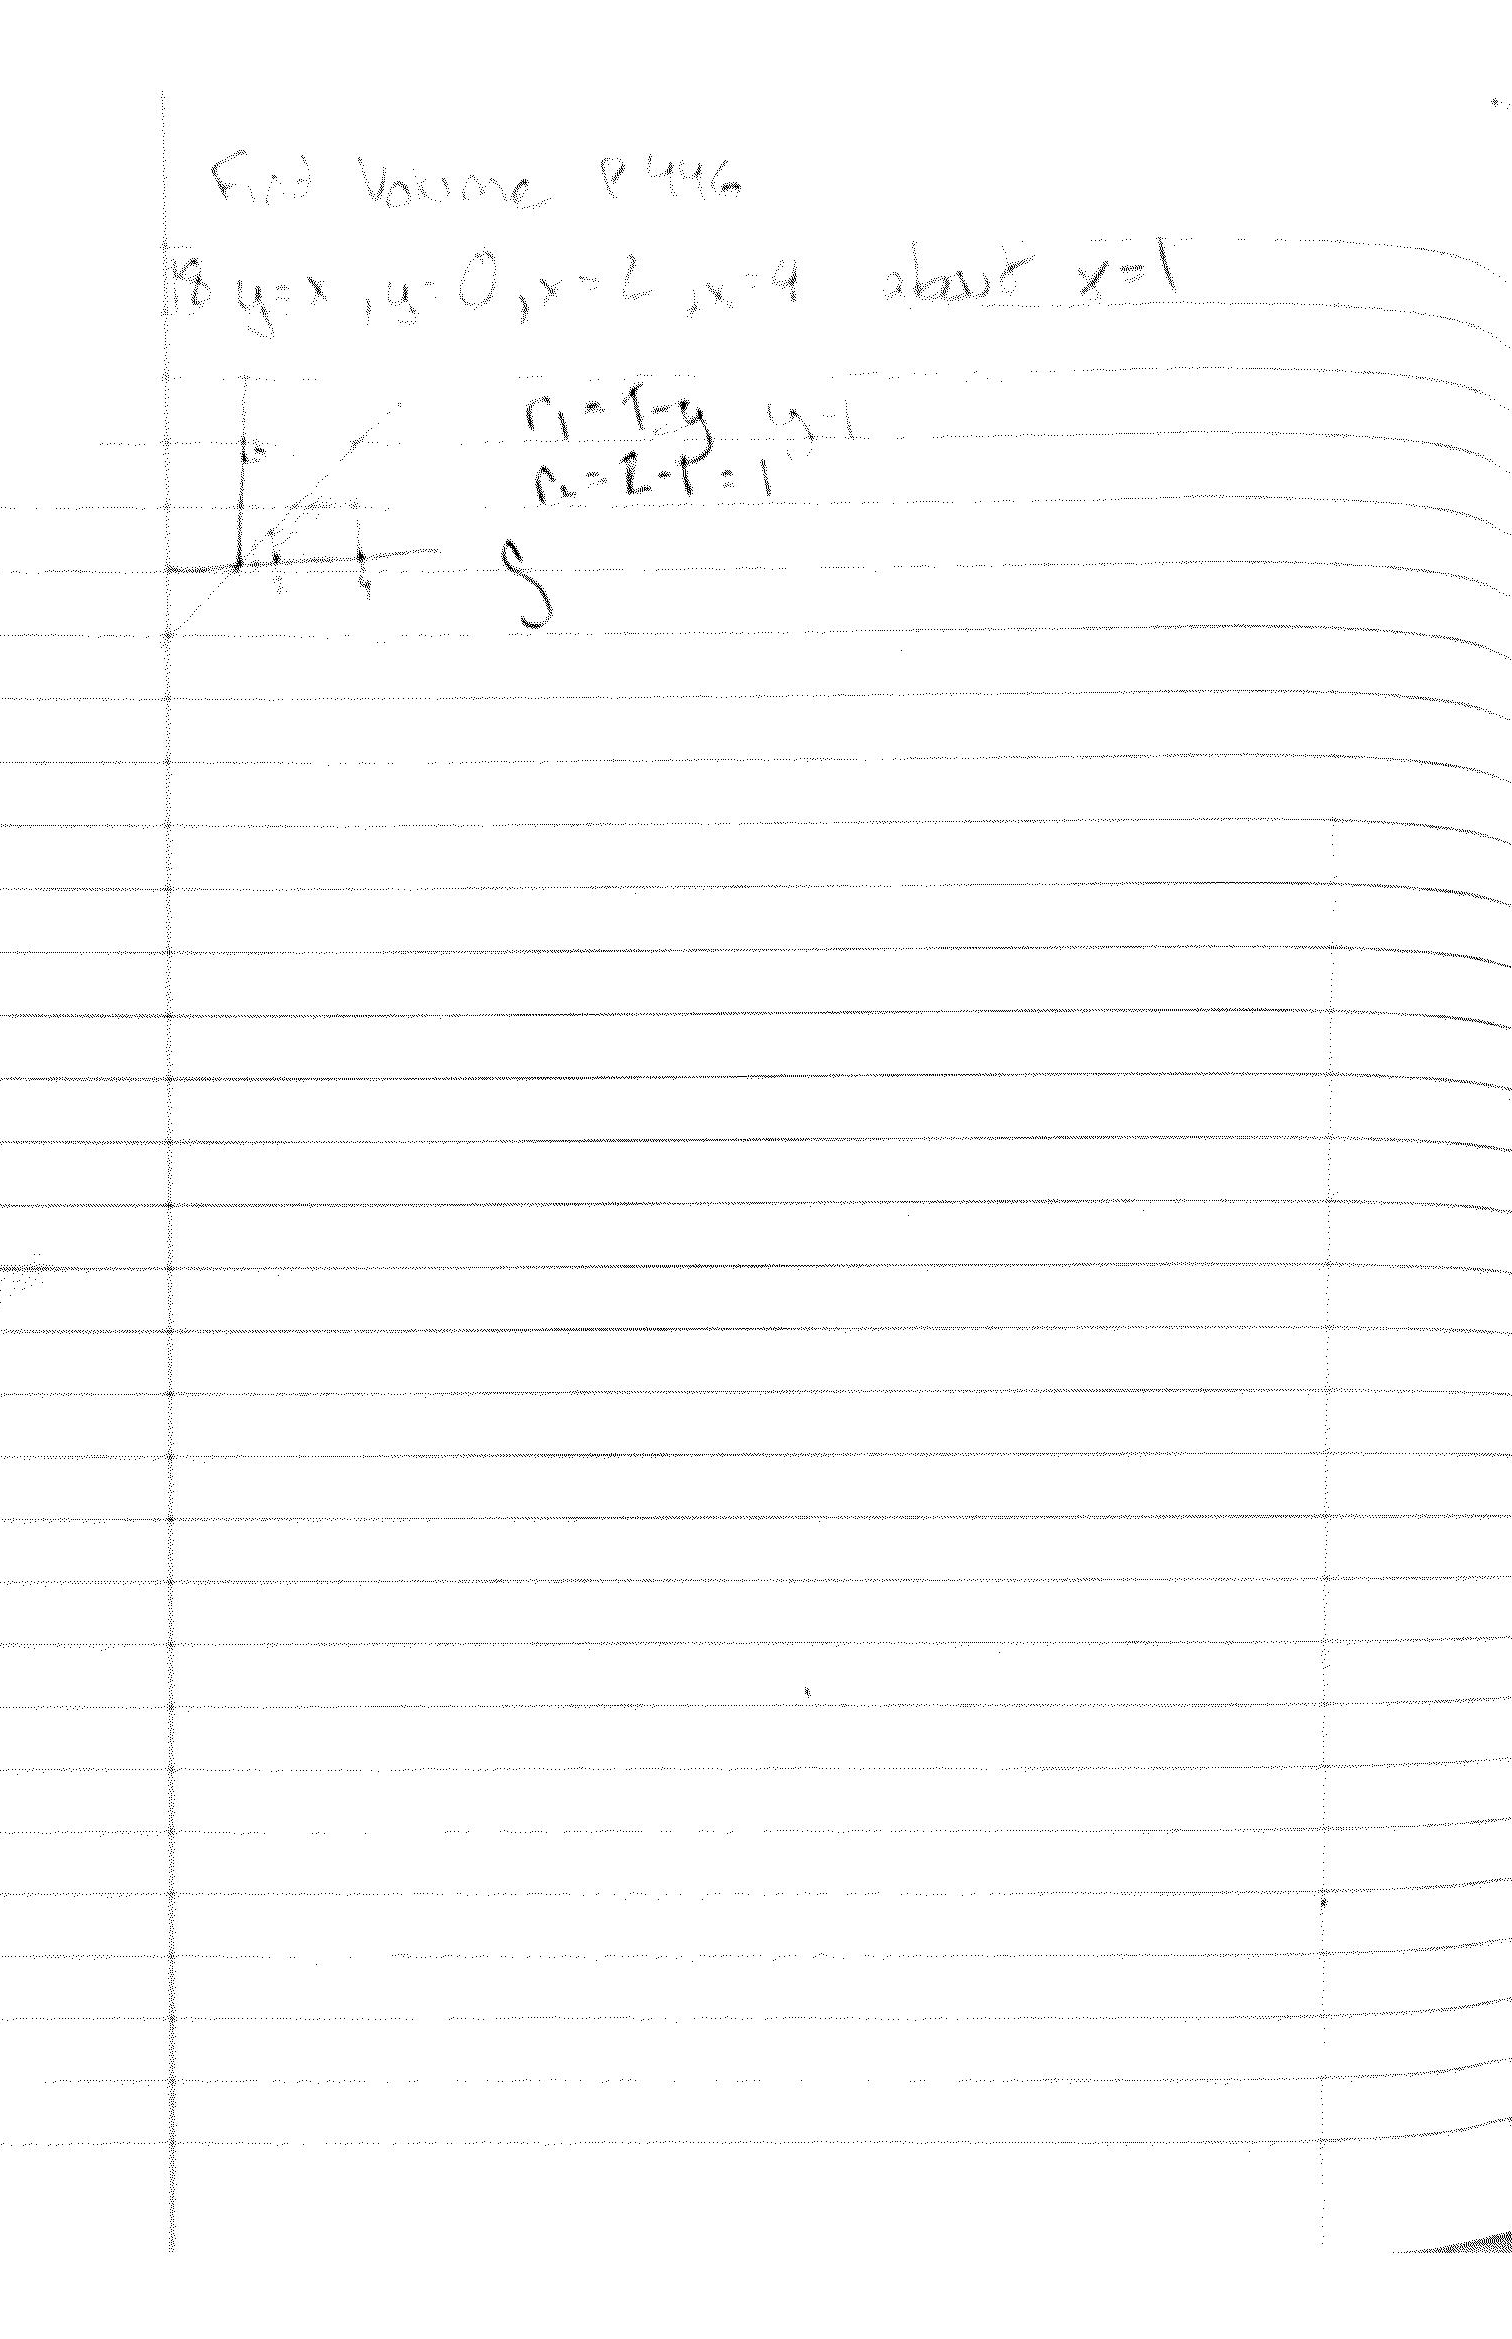 Find Volume P 446
18 y=x, y=0, x=2, x=4 about x=1
r₁ = 1-y y-1
r₂ = 2-1 = 1
4
∫